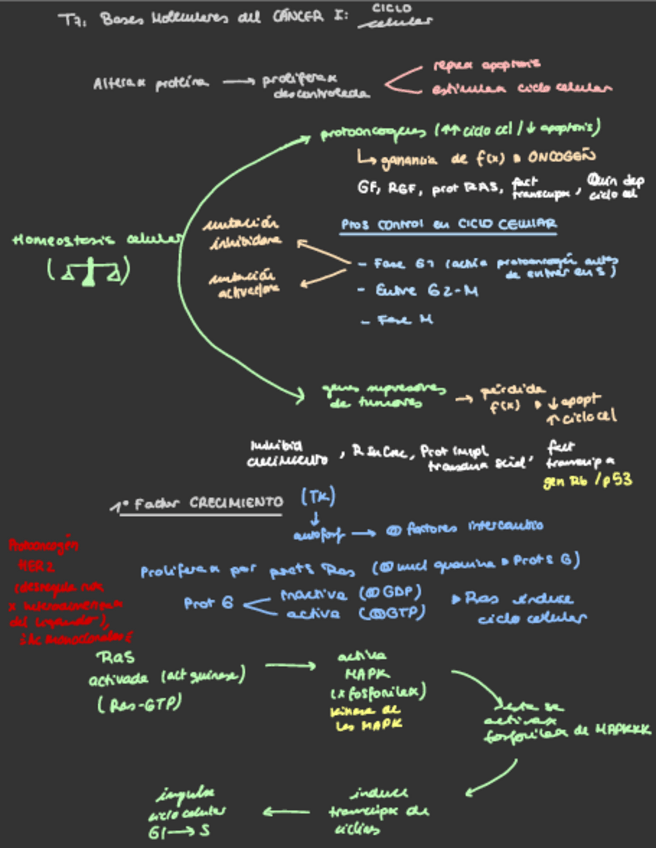 T7: Bases Moleculares del CÁNCER I: CICLO celular
Alterax proteína → proliferax descontrolada
reprax apoptosis
estimulax ciclo celular
protooncogenes (↑↑ ciclo cel / ↓ apoptosis)
↳ ganancia de f(x) ONCOGEN
GF, RGF, prot RAS, fact transcripx, Quin dep ciclo cel
Homeostasis celular
mutación inhibidora
mutación activadora
Ptos control en CICLO CELULAR
- Fase G1 (actúa protooncogén antes de entrar en S)
- Entre G2-M
- Fase M
genes supresores de tumores → pérdida f(x) ↓ apopt
↑ ciclo cel
Inhibid crecimiento, Prot impl transducx señal, fact transcripx
gen Rb / p53
1º Factor CRECIMIENTO (TK)
↓
autofosf → factores intercambio
Protooncogén
HER2
del ligando),
Proliferax por prots Ras (nucl guanina Prots G)
Prot G
inactiva (GDP)
activa (GTP)
Ras induce ciclo celular
Ras
activada (act quinasa)
(Ras-GTP)
→ activa
MAPK
(x fosforilax)
kinasa de
las MAPK
ésta se
activa x
fosforilax de MAPKKK
induce
transcripx de
ciclinas
← impulsa
ciclo celular
G1 → S